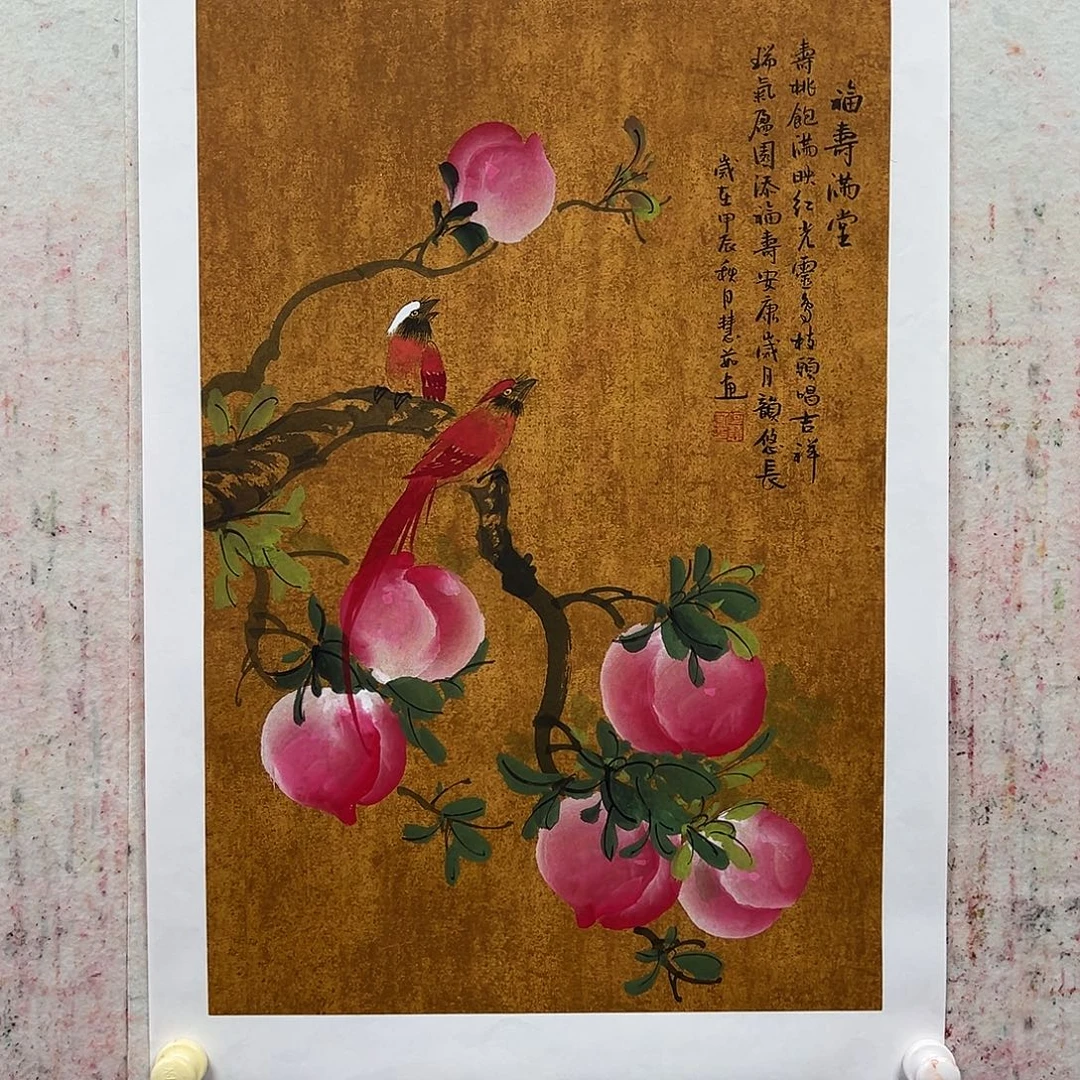 福壽滿堂
壽桃飽滿映紅光靈鳥枝頭唱吉祥
瑞氣盈園添福壽安康歲月韻悠長
歲在甲辰秋月慧茹畫